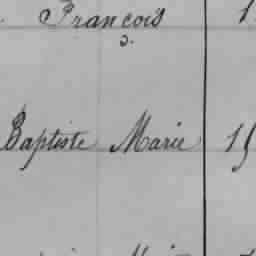 François
Baptiste Marie 15